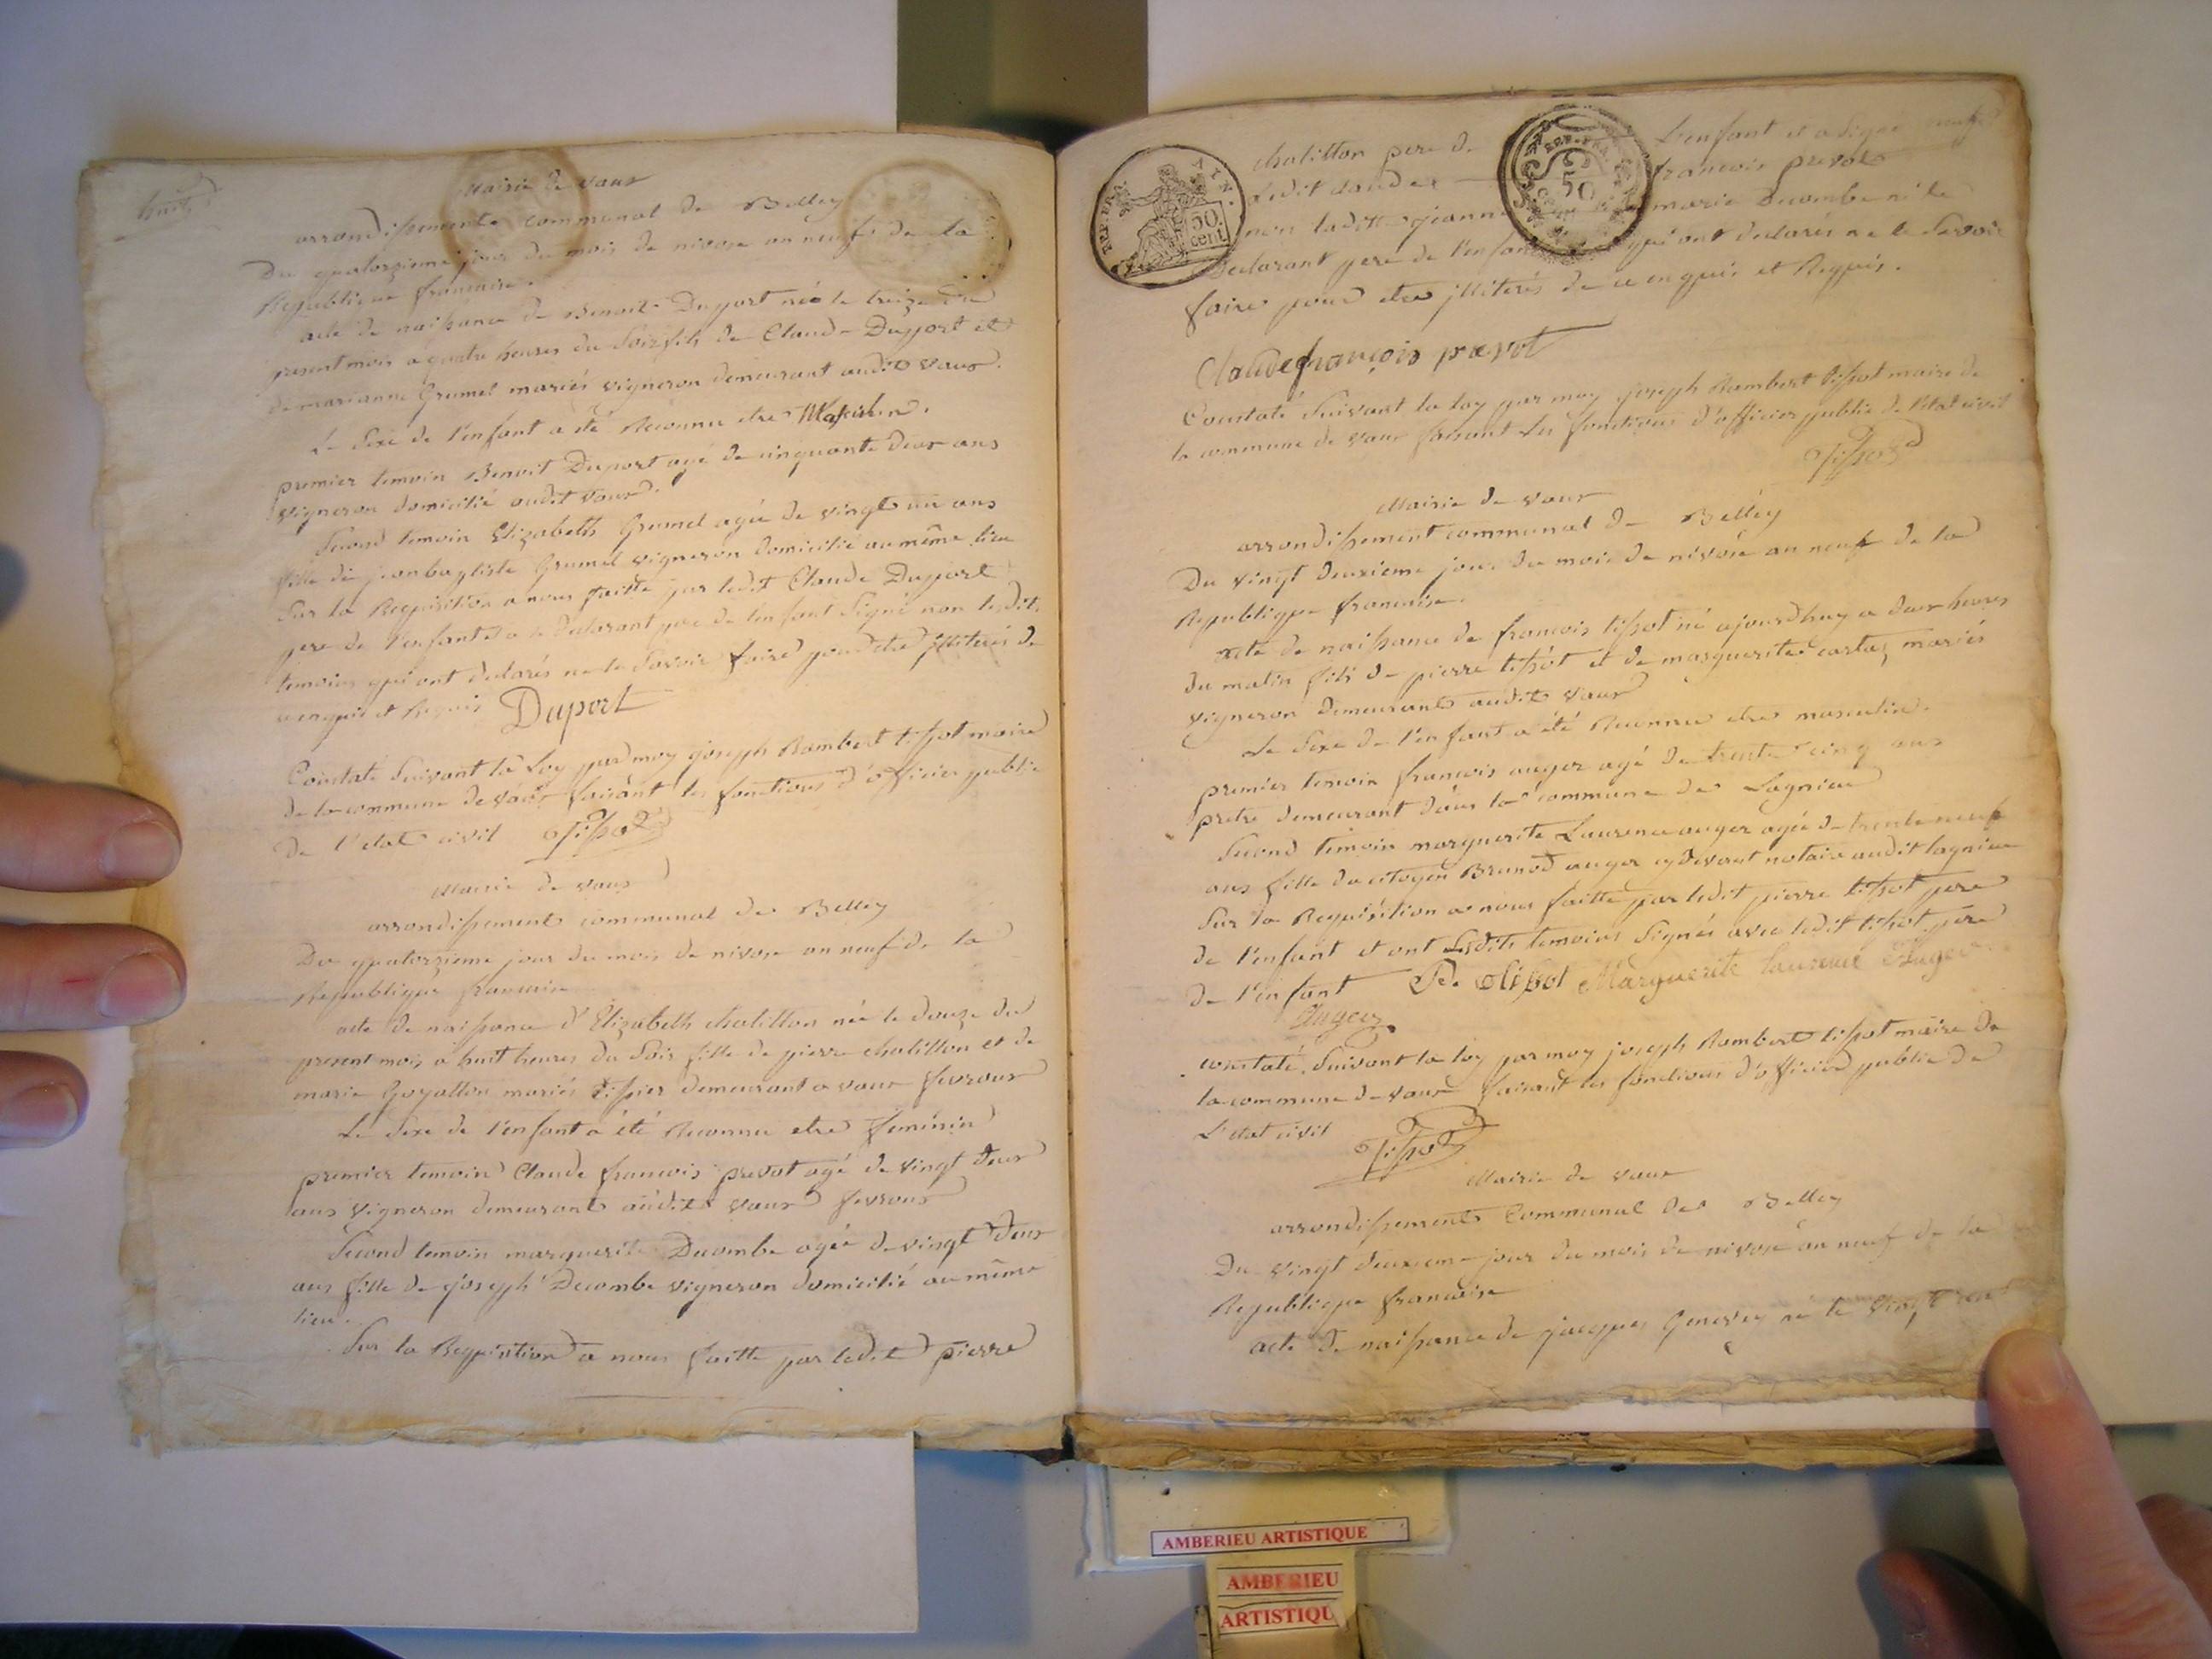 huit
Mairie de vaux
arrondissement communal de Belley
Du quatorzieme jour du mois de nivose an neuf de la
Republique francaise.
acte de naissance de Benoit Duport née le treize du
present mois a quatre heures du Soir fils de Claude Duport et
de marianne Grumet mariés vigneron demeurant audit vaux.
Le Sexe de l'enfant a été Reconnu etre Masculin.
premier temoin Benoit Duport agé de cinquante deux ans
vigneron domicilié audit vaux.
Second temoin Elizabeth Grumet agée de vingt un ans
fille de jean baptiste Grumet vigneron domicilié au même lieu
Sur la Requisition a nous faitte par ledit Claude Duport
pere de l'enfant et a le declarant pere de l'enfant Signé non lesdits
temoins qui ont declarés ne le Savoir faire pour etre illiterés de
ce enquis et Requis Duport
Constaté Suivant la Loy par moy joseph Rambert tissot maire
de la commune de vaux faisant les fonctions d'officier public
de l'etat civil Tissot
Mairie de vaux
arrondissement communal de Belley
Du quatorzieme jour du mois de nivose an neuf de la
Republique francaise
acte de naissance d'Elizabeth chatillon née le douze du
present mois a huit heures du Soir fille de pierre chatillon et de
marie Goyatton mariés tissier demeurant a vaux fevroux
Le Sexe de l'enfant a été Reconnu etre feminin
premier temoin Claude francois prevot agé de vingt deux
ans vigneron demeurant audit vaux fevroux
Second temoin marguerite Decombe agée de vingt deux
ans fille de joseph Decombe vigneron domicilié au même
lieu.
Sur la Requisition a nous faitte par ledit pierre
chatillon pere de l'enfant et a Signé
Ledit claude francois prevot
non laditte marie Decombe ni le
Declarant pere de l'enfant qui ont declarés ne le Savoir
faire pour etre illiterés de ce enquis et Requis.
REP. FRA.
AYN.
50.
cent.
REP. FRA.
50
Claude françois prevot
Constaté Suivant la loy par moy joseph Rambert tissot maire de
la commune de vaux faisant les fonctions d'officier public de l'etat civil
Tissot
Mairie de vaux
arrondissement communal de Belley
Du vingt deuxieme jour du mois de nivose an neuf de la
Republique francaise.
acte de naissance de francois tissot né ajourdhuy a deux heures
du matin fils de pierre tissot et de marguerite cartaz mariés
vigneron demeurant audit vaux
Le Sexe de l'enfant a été Reconnu etre masculin.
premier temoin francois auger agé de trente cinq ans
pretre demeurant dans la commune de Lagnieu
Second temoin marguerite Laurence auger agée de trente neuf
ans fille du citoyen Brunod auger cydevant notaire audit lagnieu
Sur la Requisition a nous faitte par ledit pierre tissot pere
de l'enfant et ont Lesdits temoins Signés avec ledit tissot pere
de l'enfant Pe. tissot Marguerite laurence Auger
Auger
constaté Suivant la loy par moy joseph Rambert tissot maire de
la commune de vaux faisant les fonctions d'officier public de
L'etat civil
Tissot
Mairie de vaux
arrondissement Communal de Belley
Du vingt deuxieme jour du mois de nivose an neuf de la
Republique francaise
acte de naissance de jacques Genevey né le vingt
AMBERIEU ARTISTIQUE
AMBERIEU
ARTISTIQU